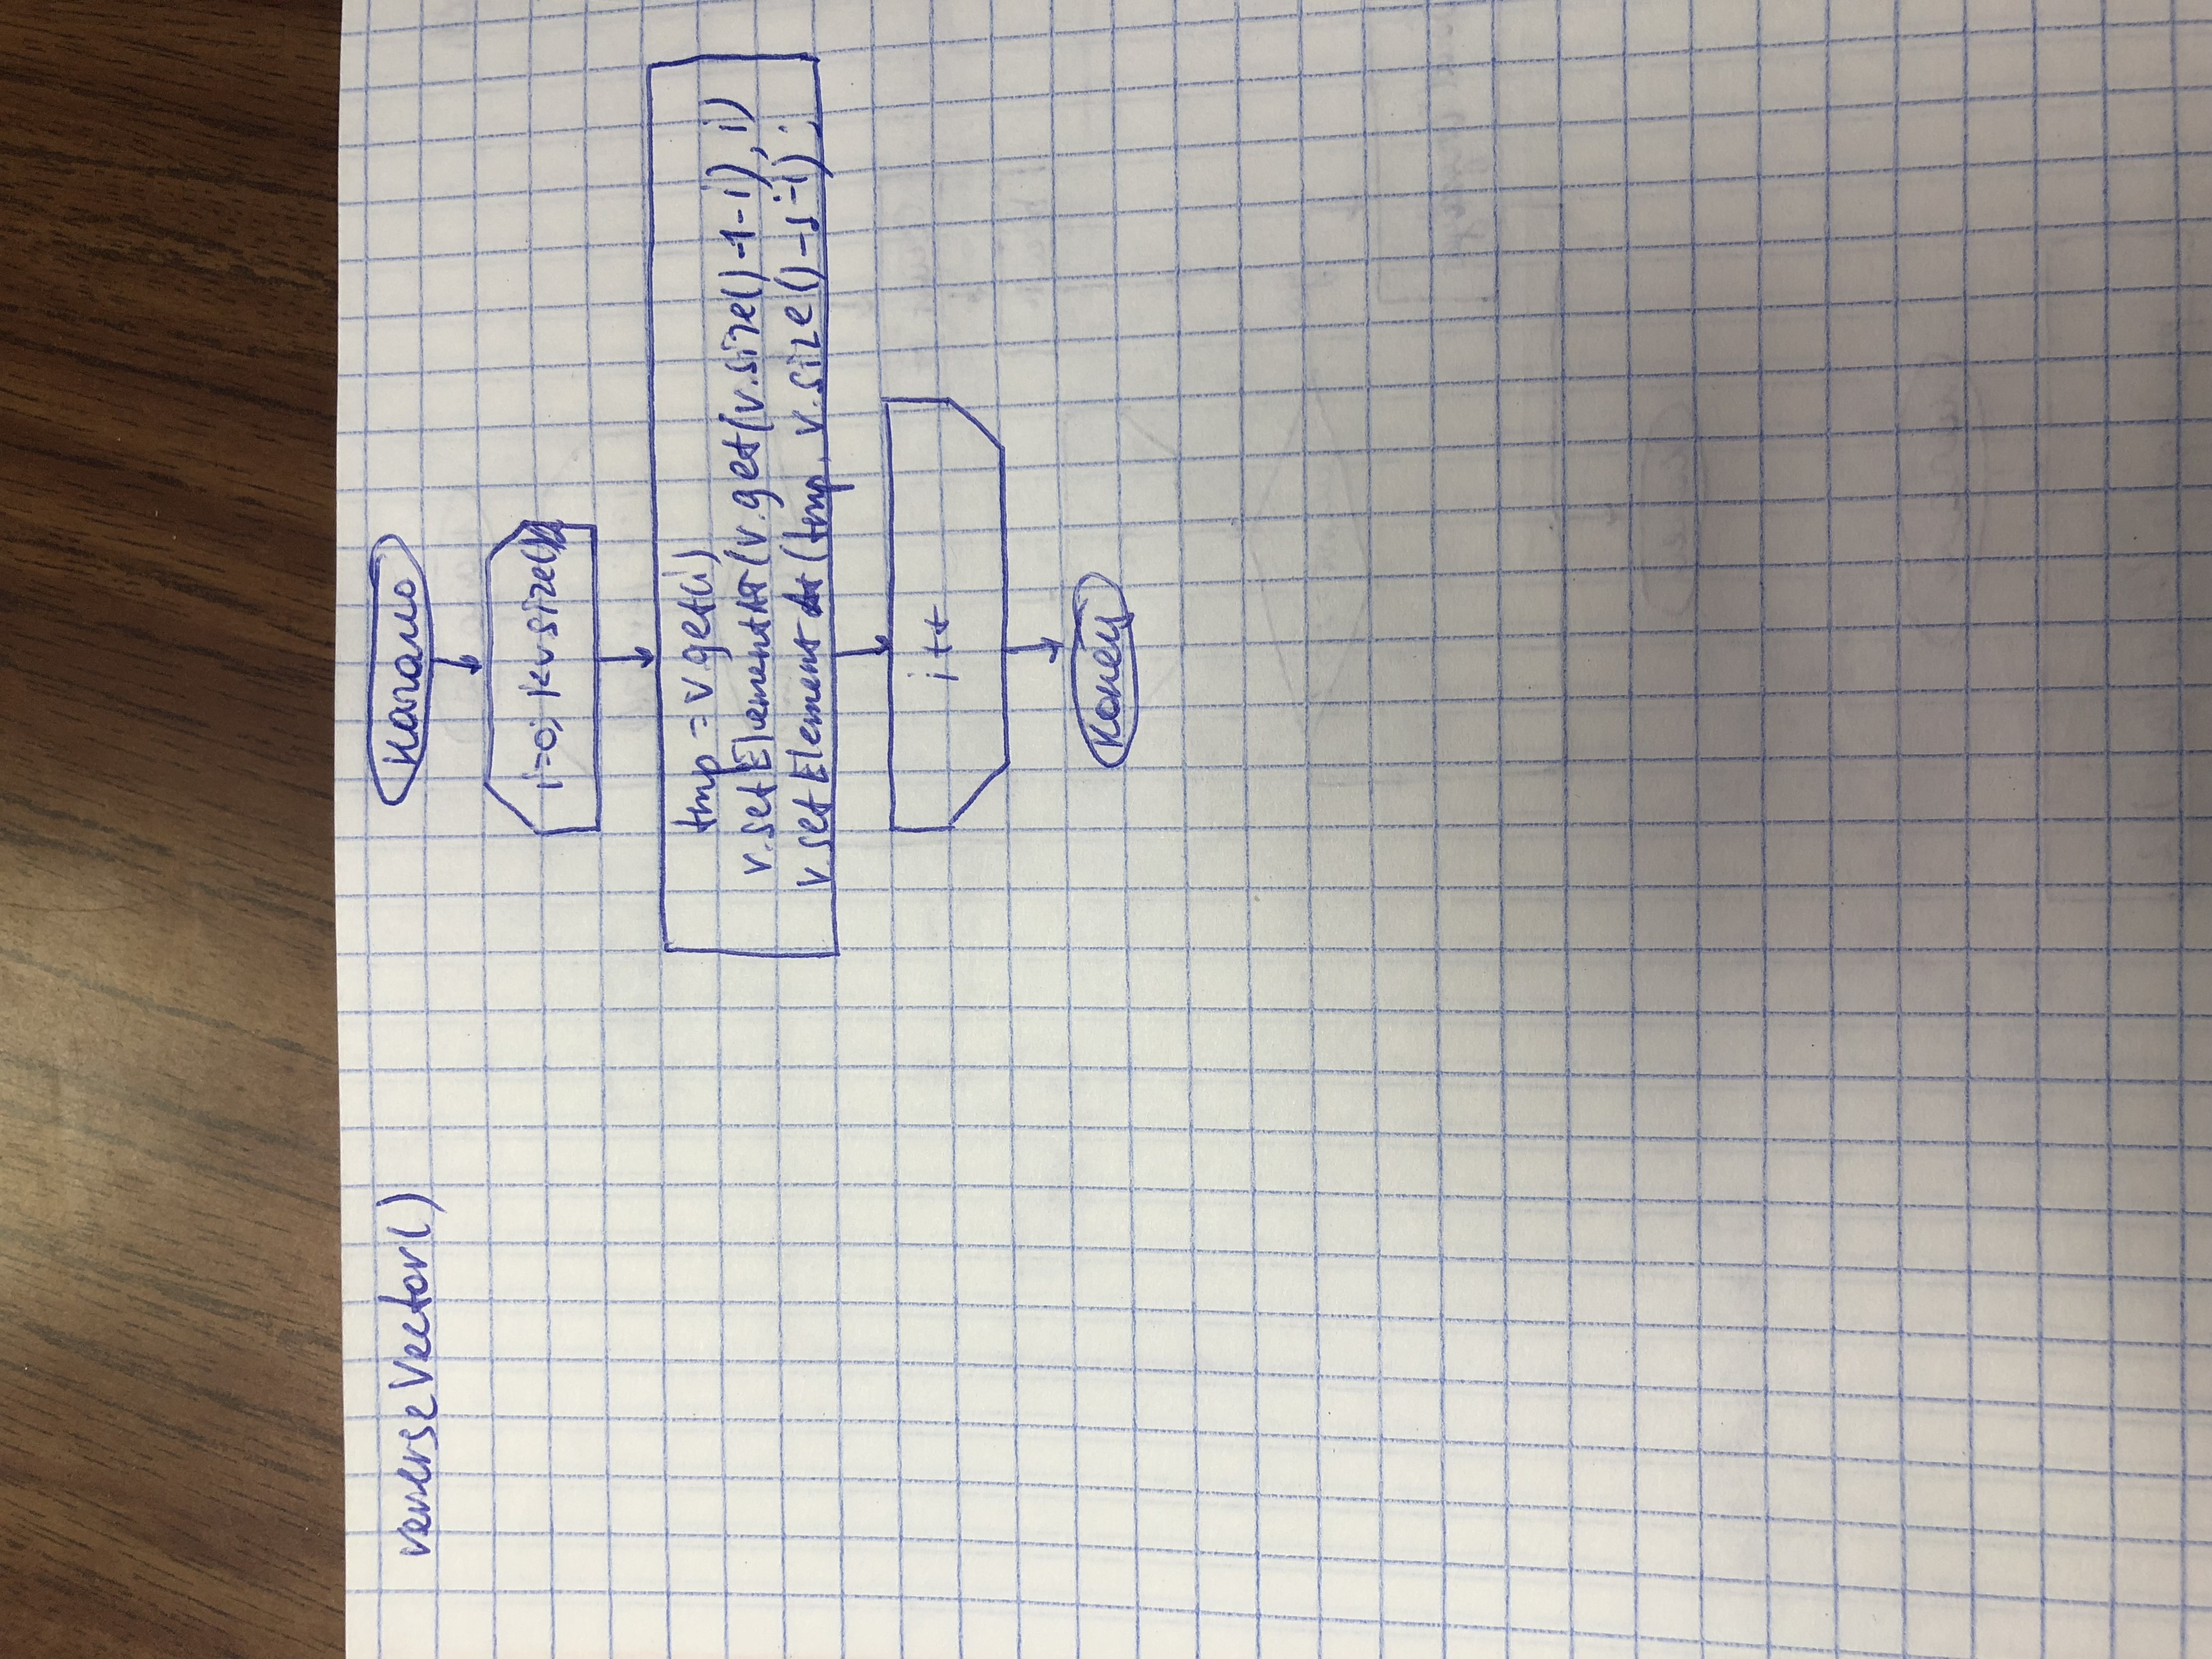 reverseVector()
начало
i=0; i<v size()/2
tmp = v.get(i)
v.setElementAt(v.get(v.size()-1-i), i)
v.setElementAt(tmp, v.size()-1-i);
i++
конец